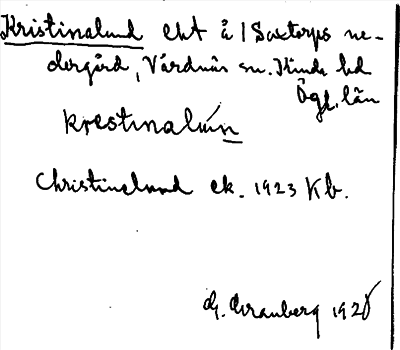 Kristinalund eht å 1 Saxtorps ne-
dergård, Vårdnäs sn. Kinda hd
Ögl. län
krestinalún
Christinelund ek. 1923 Kb.
G. Granberg 1928